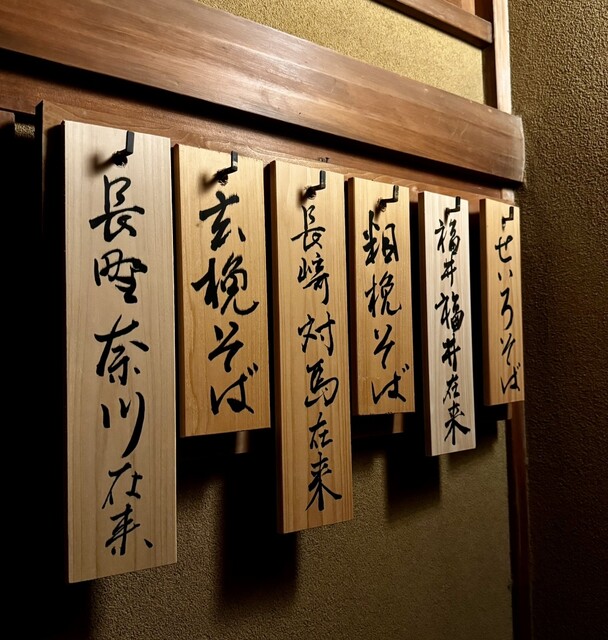 せいろそば
福井福井在来
粗挽そば
長崎対馬在来
玄挽そば
長野奈川在来